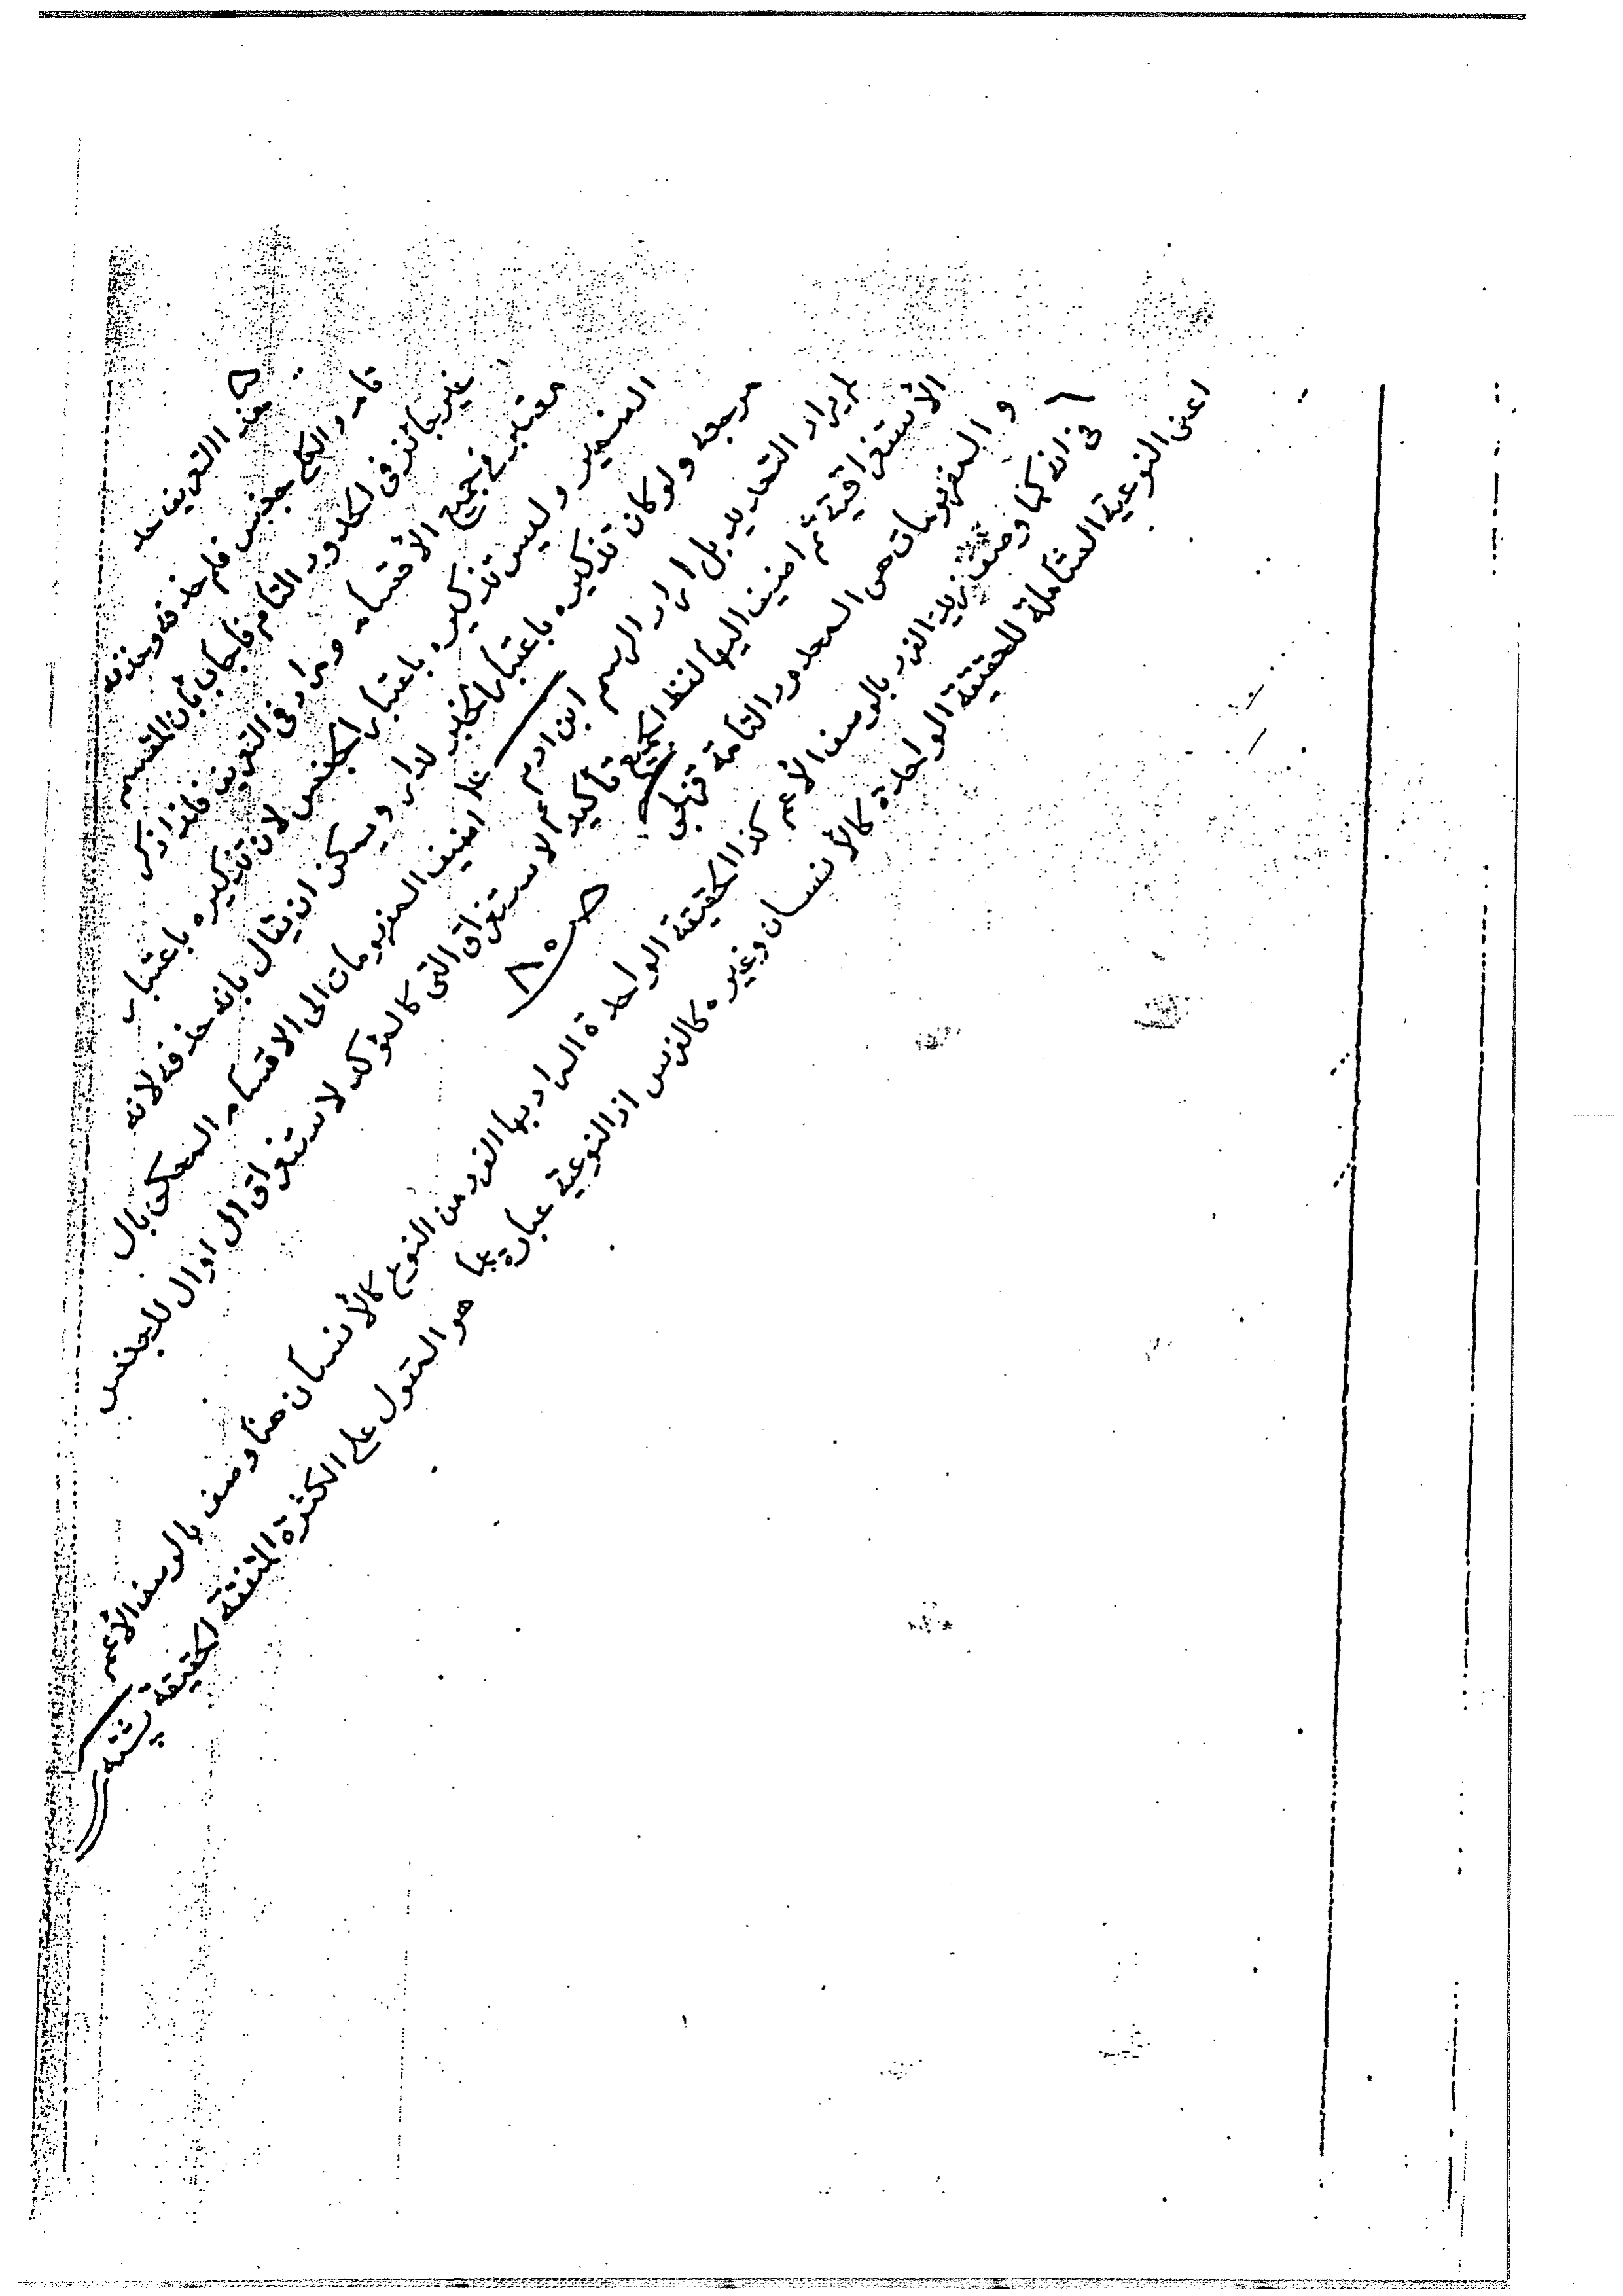 ۵ هذا التعريف حد
تام والكم جنس فلم حذفه وحذفه
غير جائز فى الحدود التام فاجاب بأن المقسم
معتبر فى جميع الأقسام ومراد فى التعريف فلذا ذكر
الضمير وليس تذكيره باعتبار الجنس لان تذكيره باعتبار
مرجعه ولو كان تذكيره باعتبار الخبر لدار ويمكن ان يقال بانه حذفه لانه
لم يراد التحديد بل اراد الرسم ابن ادم علا اضيف المفهومات الى الاقسام الممكن بال
الأستغراقية ثم اضيف اليها لفظ الجميع تأكيد الاستغراق التى كالمؤكد لاستغراق ال او ال للجنس
و المفهومات هى المحدود التامة قزلجى
صـ ۸۰
۸ فى انه كما وصف زيد الفرد بالوصف الأعم كذا الحقيقة الواحدة المراد بها الفرد من النوع كالأنسان هنا وصف بالوصف الأعم
اعنى النوعية الشاملة للحقيقة الواحدة كالأنسان وغيره كالفرس اذ النوعية عبارة عما هو المقول على الكثرة المتفقة الحقيقة